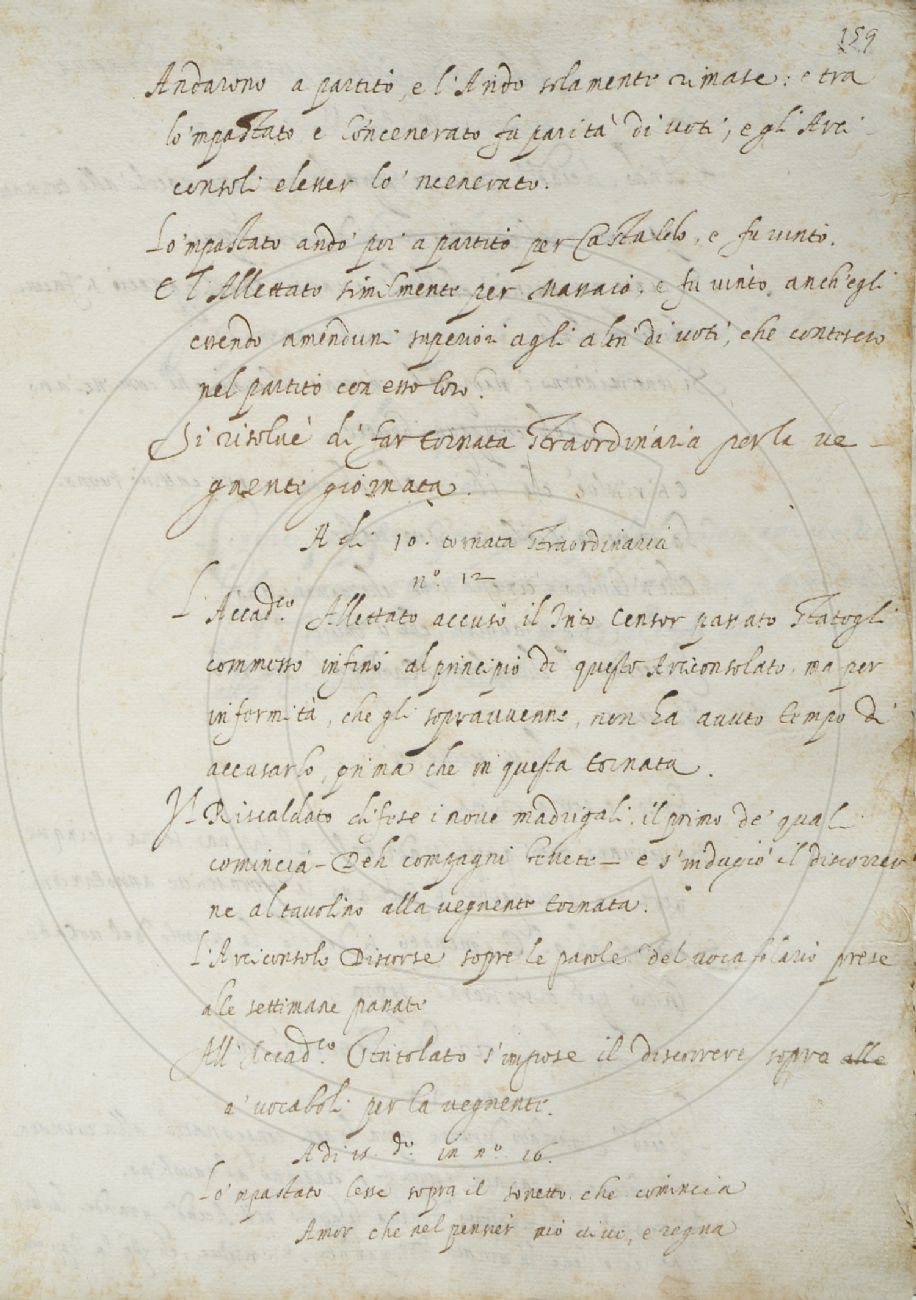 159
Andarono a partito, e l'Arido solamente rimase: e tra
lo 'mpastato e lo 'ncenerato fu parità di voti, e gli Arci-
consoli elesser lo 'ncenerato.
Lo 'mpastato andò poi a partito per Castaldo, e fu vinto.
E l'Allettato similmente per Massaio, e fu vinto anch'egli
essendo amenduni superiori agli altri di voti, che contesero
nel partito con esso loro.
Si risolvé di far tornata straordinaria per la ve-
gnente giornata.
A dì 10. tornata straordinaria
n.º 12
L'Accad.co Allettato accusò il Trito Censor passato statogli
commesso infino al principio di questo Arciconsolato, ma per
infermità, che gli sopravvenne, non ha avuto tempo di
accusarlo, prima che in questa tornata.
Il Riscaldato difese i nove madrigali, il primo de' quali
comincia - Deh compagni - e s'indugiò il discorrer
ne al tavolino alla vegnente tornata.
L'Arciconsolo Discorse sopre le parole del vocabolario prese
alle settimane passate
All'Accad.co s'impose il discorrere sopra alle
a' vocaboli per la vegnente.
A dì 15 d.º in n.º 16.
Lo 'mpastato lesse sopra il sonetto che comincia
Amor che nel pensier mio vive, e regna